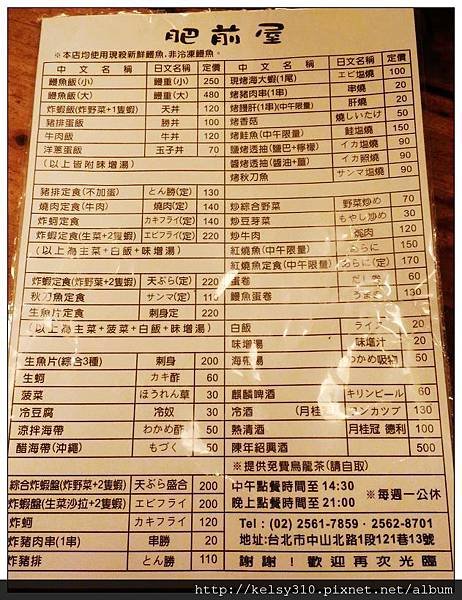 肥前屋
※本店均使用現殺新鮮鰻魚,非冷凍鰻魚。
中文名稱 日文名稱 定價
鰻魚飯(小) 鰻重(小) 250
鰻魚飯(大) 鰻重(大) 480
炸蝦飯(炸野菜+1隻蝦) 天丼 120
豬排蛋飯 勝丼 100
牛肉飯 牛丼 120
洋蔥蛋飯 玉子丼 70
(以上皆附味增湯)
豬排定食(不加蛋) とん勝(定) 130
燒肉定食(牛肉) 燒肉(定) 140
炸蚵定食 カキフライ(定) 140
炸蝦定食(生菜+2隻蝦) エビフライ(定) 220
(以上為主菜+白飯+味增湯)
炸蝦定食(炸野菜+2隻蝦) 天ぷら(定) 220
秋刀魚定食 サンマ(定) 110
生魚片定食 刺身(定) 230
(以上為主菜+菠菜+白飯+味增湯)
生魚片(綜合3種) 刺身 200
生蚵 カキ酢 60
菠菜 ほうれん草 30
冷豆腐 冷奴 30
涼拌海帶 わかめ酢 50
醋海帶(沖繩) もづく 50
綜合炸蝦盤(炸野菜+2隻蝦) 天ぷら盛合 200
炸蝦盤(生菜沙拉+2隻蝦) エビフライ 200
炸蚵 カキフライ 120
炸豬肉串(1串) 串勝 20
炸豬排 とん勝 110
中文名稱 日文名稱 定價
現烤海大蝦(1尾) エビ塩燒 100
烤豬肉串(1串) 串燒 20
烤護肝(1串)(中午限量) 肝燒 70
烤香菇 燒しいたけ 50
烤鮭魚(中午限量) 鮭塩燒 150
鹽烤透抽(鹽巴+檸檬) イカ塩燒 90
醬烤透抽(醬油+薑) イカ照燒 90
烤秋刀魚 サンマ塩燒 90
炒綜合野菜 野菜炒め 70
炒豆芽菜 もやし炒め 30
炒牛肉 燒肉 120
紅燒魚(中午限量) あらに 150
紅燒魚定食(中午限量) あらに(定) 170
蛋卷 だし卷 60
鰻魚蛋卷 うまき 130
白飯 ライス 20
味增湯 味增汁 20
海帶湯 わかめ吸物 50
麒麟啤酒 キリンビール 60
冷酒 (月桂冠)ワンカップ 130
熱清酒 月桂冠 德利 100
陳年紹興酒 500
※提供免費烏龍茶(請自取)
中午點餐時間至14:30
晚上點餐時間至21:00
※每週一公休
Tel : (02) 2561-7859 · 2562-8701
地址:台北市中山北路1段121巷13號
謝謝!歡迎再次光臨
http://kelsy310.pixnet.net/album